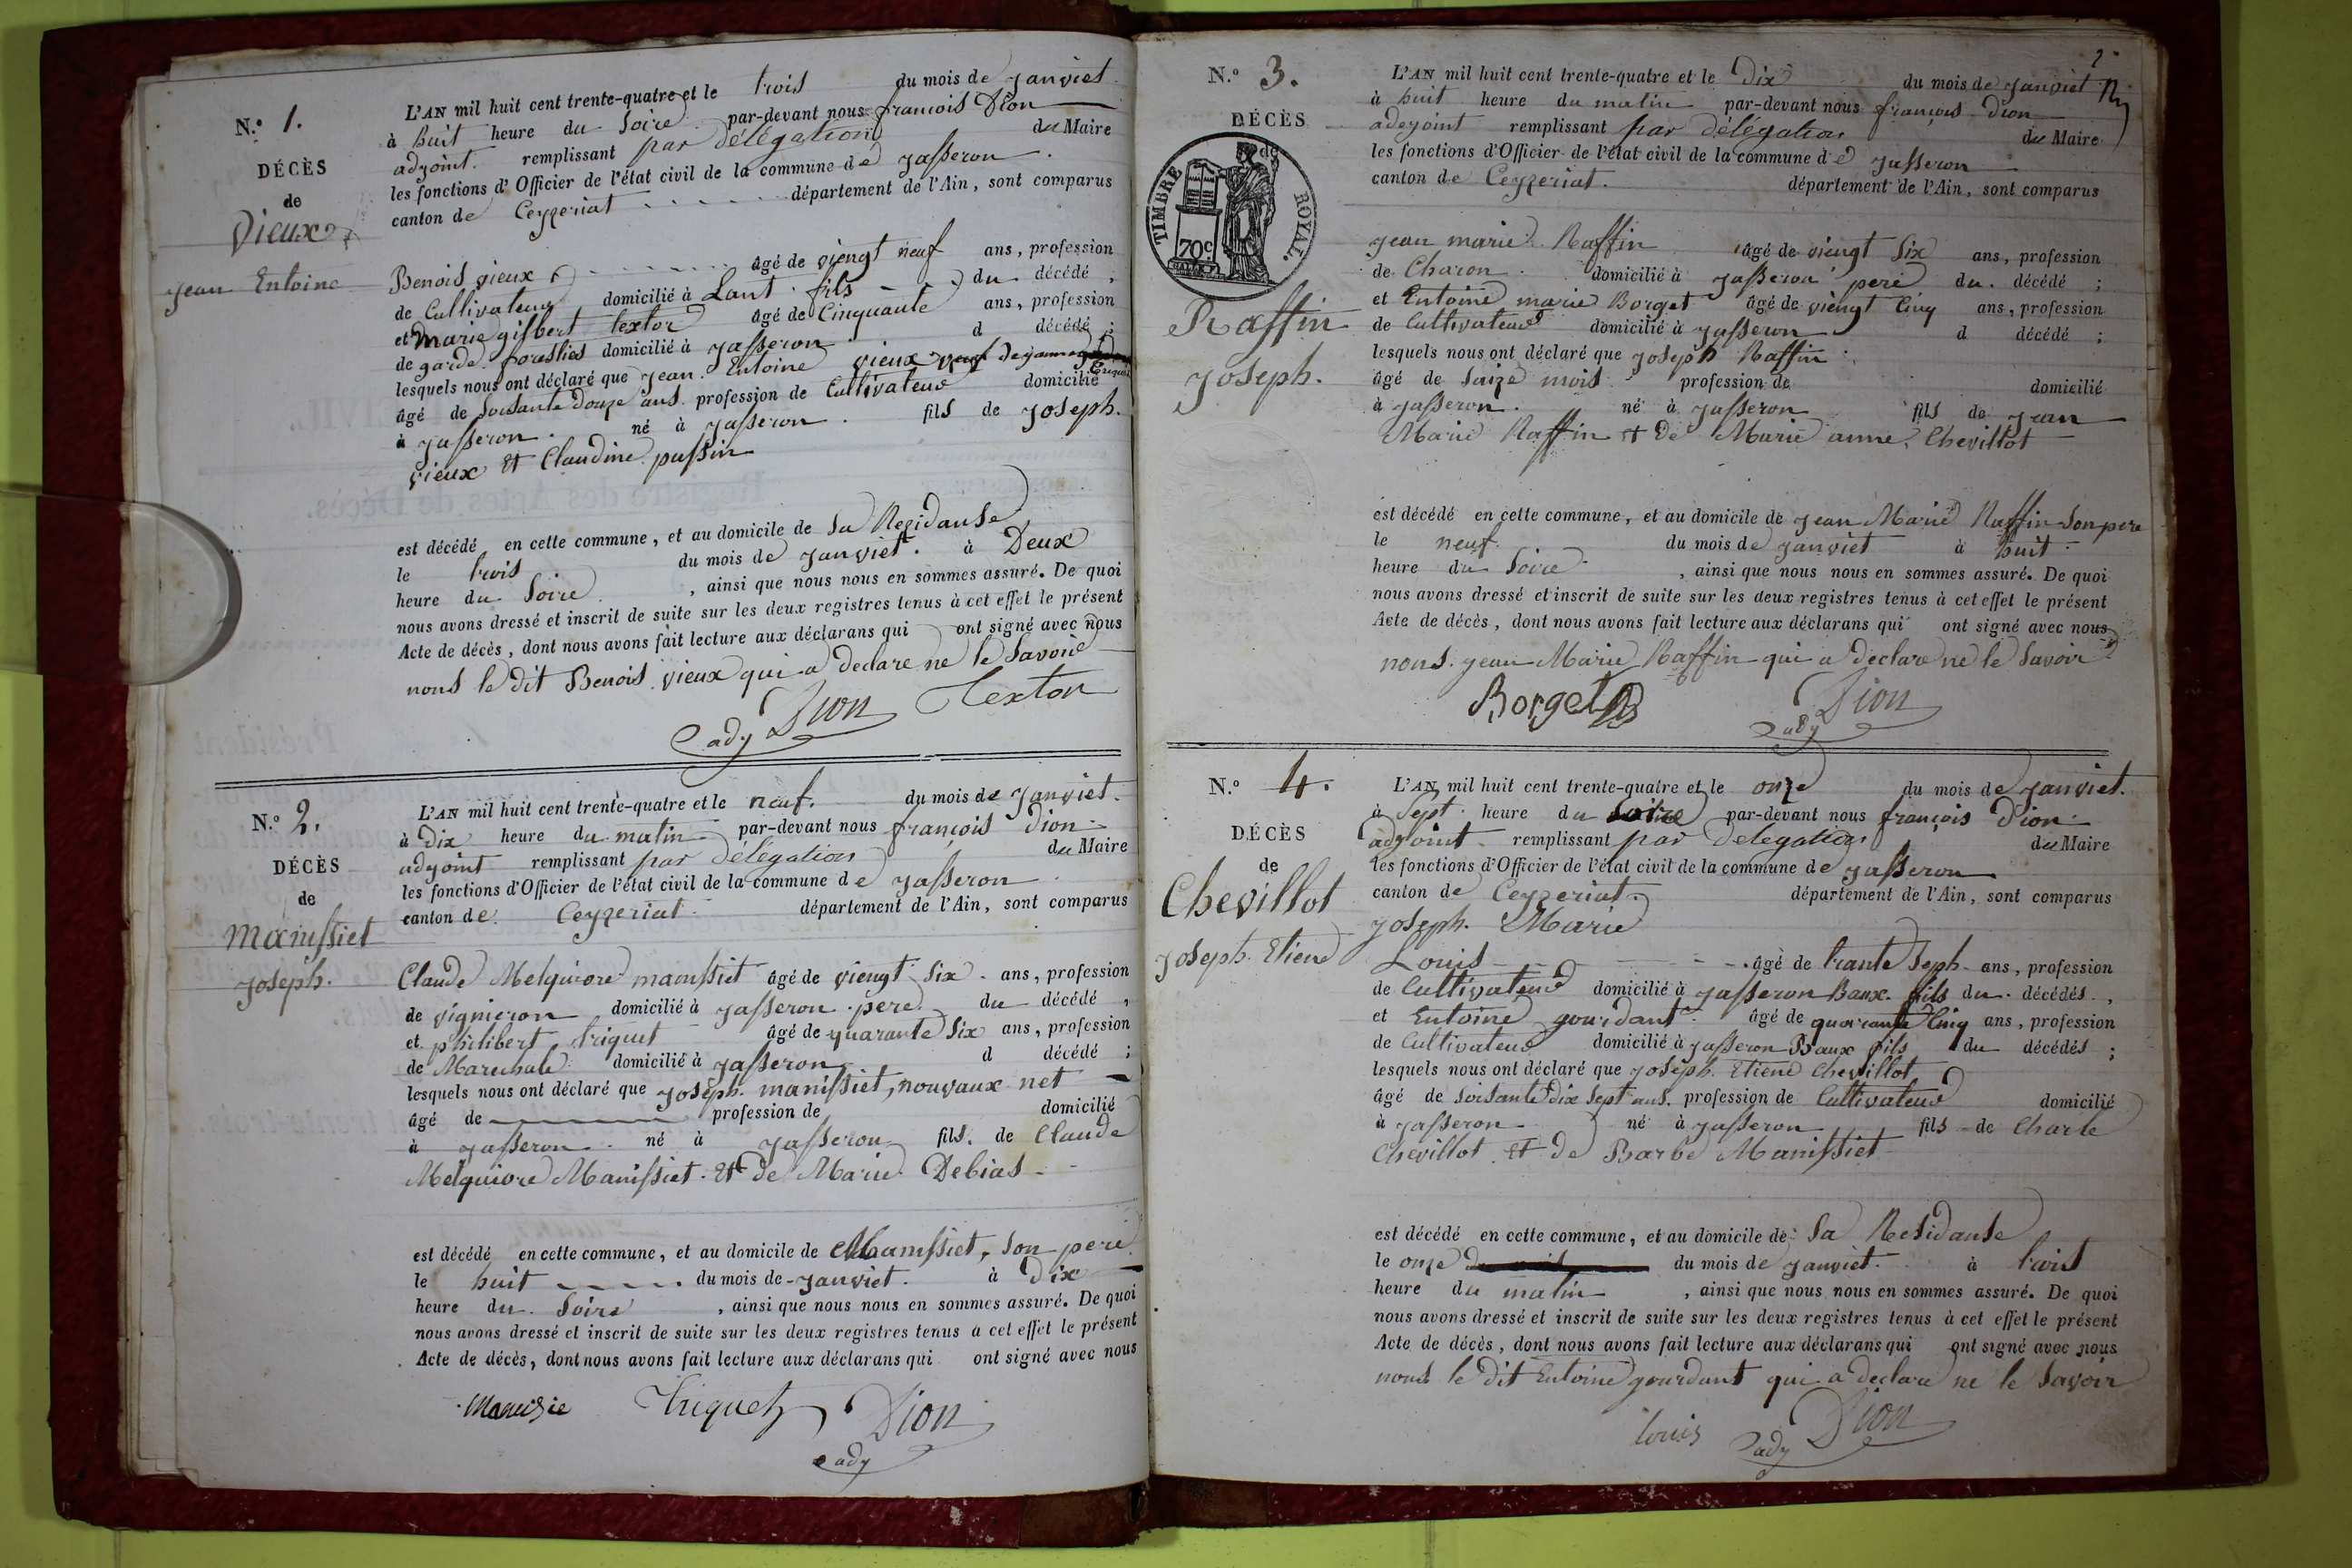 N.º 1.
DÉCÈS
de
Vieux
jean Entoine
L'AN mil huit cent trente-quatre et le trois du mois de janviet
à huit heure du Soire par-devant nous francois Dion
adjoint. remplissant par délégation du Maire
les fonctions d'Officier de l'état civil de la commune de jasseron
canton de Ceyzeriat département de l'Ain, sont comparus
Benois vieux âgé de viengt neuf ans, profession
de Cultivateur domicilié à Lant fils du décédé,
et Marie gilbert textor âgé de Cinquante ans, profession
de garde foresties domicilié à jasseron d décédé;
lesquels nous ont déclaré que jean Entoine vieux
âgé de soisante douze ans profession de Cultivateur domicilié
à jasseron. né à jasseron. fils de joseph.
vieux et Claudine passin
est décédé en cette commune, et au domicile de Sa Rezidanse
le trois du mois de janviet. à Deux
heure du Soire, ainsi que nous nous en sommes assuré. De quoi
nous avons dressé et inscrit de suite sur les deux registres tenus à cet effet le présent
Acte de décès, dont nous avons fait lecture aux déclarans qui ont signé avec nous
nons le dit Benois vieux qui a declare ne le Savoire
Dion Textor
ady
N.º 2.
DÉCÈS
de
Manissiet
joseph.
L'AN mil huit cent trente-quatre et le neuf. du mois de janviet.
à dix heure du matin par-devant nous françois Dion
adjoint remplissant par délégation du Maire
les fonctions d'Officier de l'état civil de la commune de jasseron
canton de Ceyzeriat département de l'Ain, sont comparus
Claude Melquiore manissiet âgé de viengt six ans, profession
de vignieron domicilié à jasseron pere du décédé,
et philibert triquet âgé de quarante Six ans, profession
de Marechale domicilié à jasseron d décédé;
lesquels nous ont déclaré que joseph. manissiet, nouvaux net
âgé de profession de domicilié
à jasseron né à jasseron fils de Claude
Melquiore Manissiet Et de Marie Debias
est décédé en cette commune, et au domicile de Manissiet, Son pere
le huit du mois de janviet. à Dix
heure du Soire, ainsi que nous nous en sommes assuré. De quoi
nous avons dressé et inscrit de suite sur les deux registres tenus à cet effet le présent
Acte de décès, dont nous avons fait lecture aux déclarans qui ont signé avec nous
Triquet Dion
ady
2
N.º 3.
DÉCÈS
de
TIMBRE ROYAL.
70c
Raffin
joseph.
L'AN mil huit cent trente-quatre et le Dix du mois de janviet
à huit heure du matin par-devant nous françois Dion
adejoint remplissant par délégation du Maire
les fonctions d'Officier de l'état civil de la commune de jasseron
canton de Ceyzeriat. département de l'Ain, sont comparus
jean marie Raffin âgé de viengt Six ans, profession
de Charon domicilié à jasseron peré du décédé;
et Entoine marie Borget âgé de viengt Cinq ans, profession
de Cultivateur domicilié à jasseron d décédé;
lesquels nous ont déclaré que joseph Raffin
âgé de Saize mois profession de domicilié
à jasseron. né à jasseron fils de jean
Marie Raffin Et De Marie anne Chevillot
est décédé en cette commune, et au domicile de jean Marie Raffin Son pere
le neuf du mois de janviet à huit
heure du Soire, ainsi que nous nous en sommes assuré. De quoi
nous avons dressé et inscrit de suite sur les deux registres tenus à cet effet le présent
Acte de décès, dont nous avons fait lecture aux déclarans qui ont signé avec nous
nons. jean Marie Raffin qui a declare ne le Savoir
Borget Dion
ady
N.º 4.
DÉCÈS
de
Chevillot
joseph. Etiene
L'AN mil huit cent trente-quatre et le onze du mois de janviet.
à Sept heure du Soire par-devant nous françois Dion
adjoint remplissant par Delegation du Maire
les fonctions d'Officier de l'état civil de la commune de jasseron
canton de Ceyzeriat. département de l'Ain, sont comparus
joseph. Marie
Louis âgé de trante Seph ans, profession
de Cultivateur domicilié à jasseron Baux fils du décédés,
et Entoine gourdant âgé de quarante Cinq ans, profession
de Cultivateur domicilié à jasseron Baux fils du décédés;
lesquels nous ont déclaré que joseph. Etiene Chevillot
âgé de Soisante Dix Sept ans. profession de Cultivateur domicilié
à jasseron né à jasseron fils de Charle
Chevillot Et de Barbe Manissiet
est décédé en cette commune, et au domicile de Sa Residanse
le onze du mois de janviet. à trois
heure du matin, ainsi que nous nous en sommes assuré. De quoi
nous avons dressé et inscrit de suite sur les deux registres tenus à cet effet le présent
Acte de décès, dont nous avons fait lecture aux déclarans qui ont signé avec nous
nons le dit Entoine gourdant qui a declare ne le Savoir
louis Dion
ady